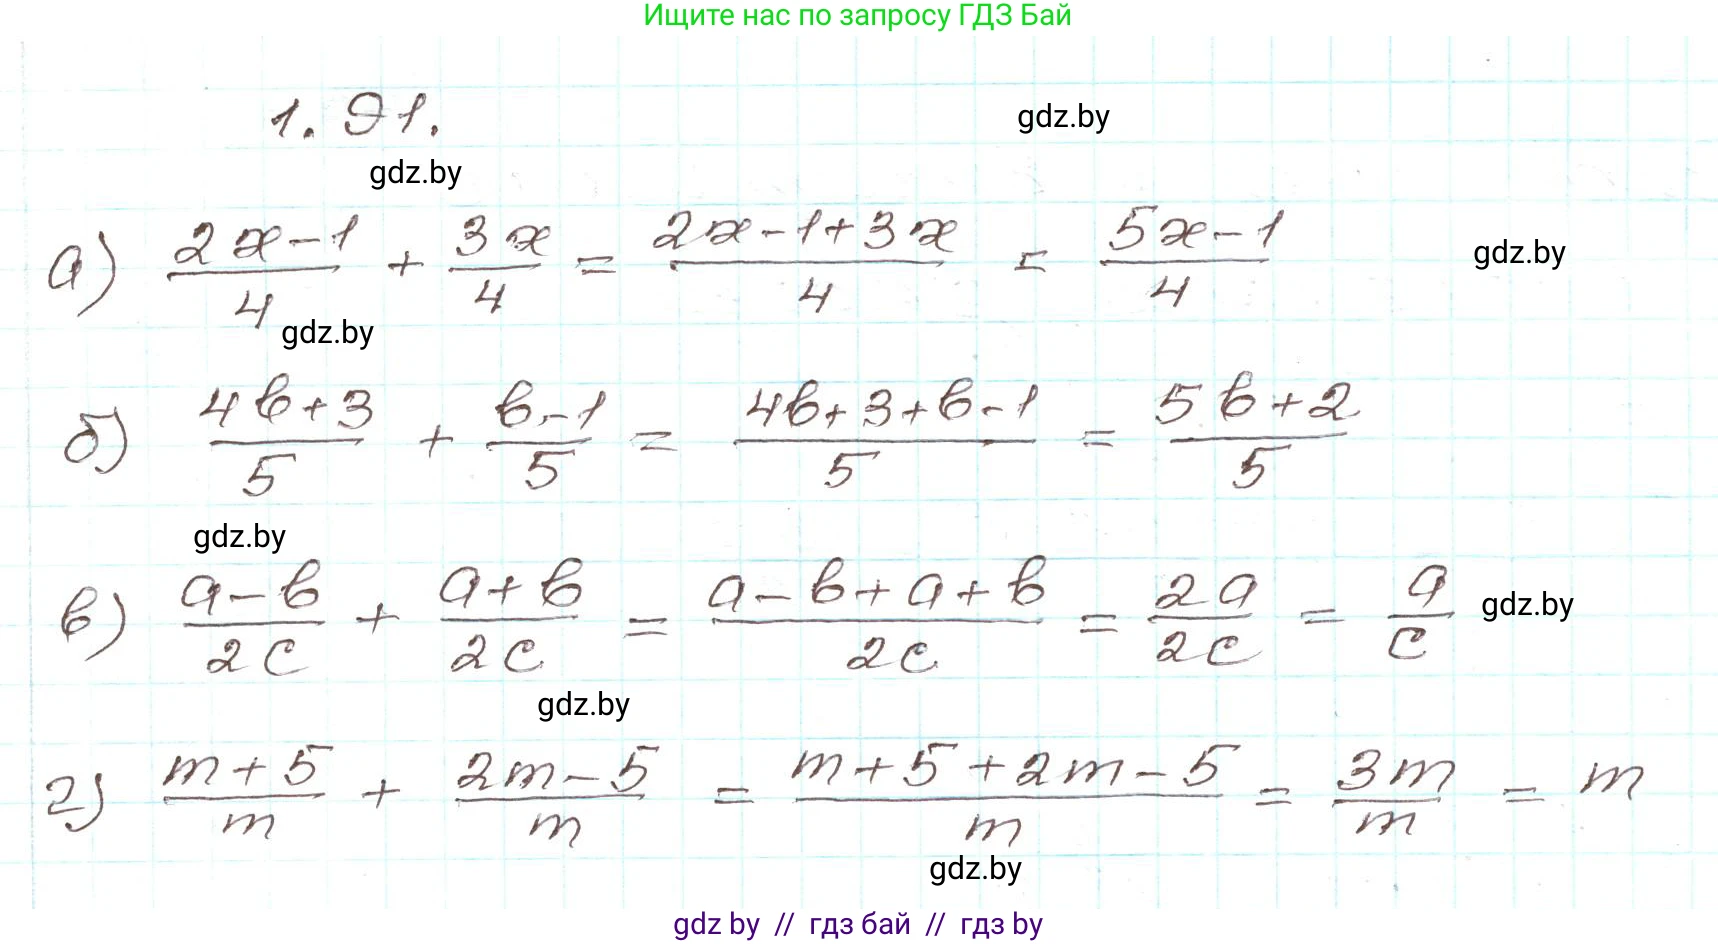 Ищите нас по запросу ГДЗ Бай
1.91.
gdz.by
gdz.by
а) (2x-1)/4 + 3x/4 = (2x-1+3x)/4 = (5x-1)/4
gdz.by
gdz.by
б) (4b+3)/5 + (b-1)/5 = (4b+3+b-1)/5 = (5b+2)/5
gdz.by
в) (a-b)/2c + (a+b)/2c = (a-b+a+b)/2c = 2a/2c = a/c
gdz.by
gdz.by
г) (m+5)/m + (2m-5)/m = (m+5+2m-5)/m = 3m/m = m
gdz.by
gdz by // гдз бай // гдз by